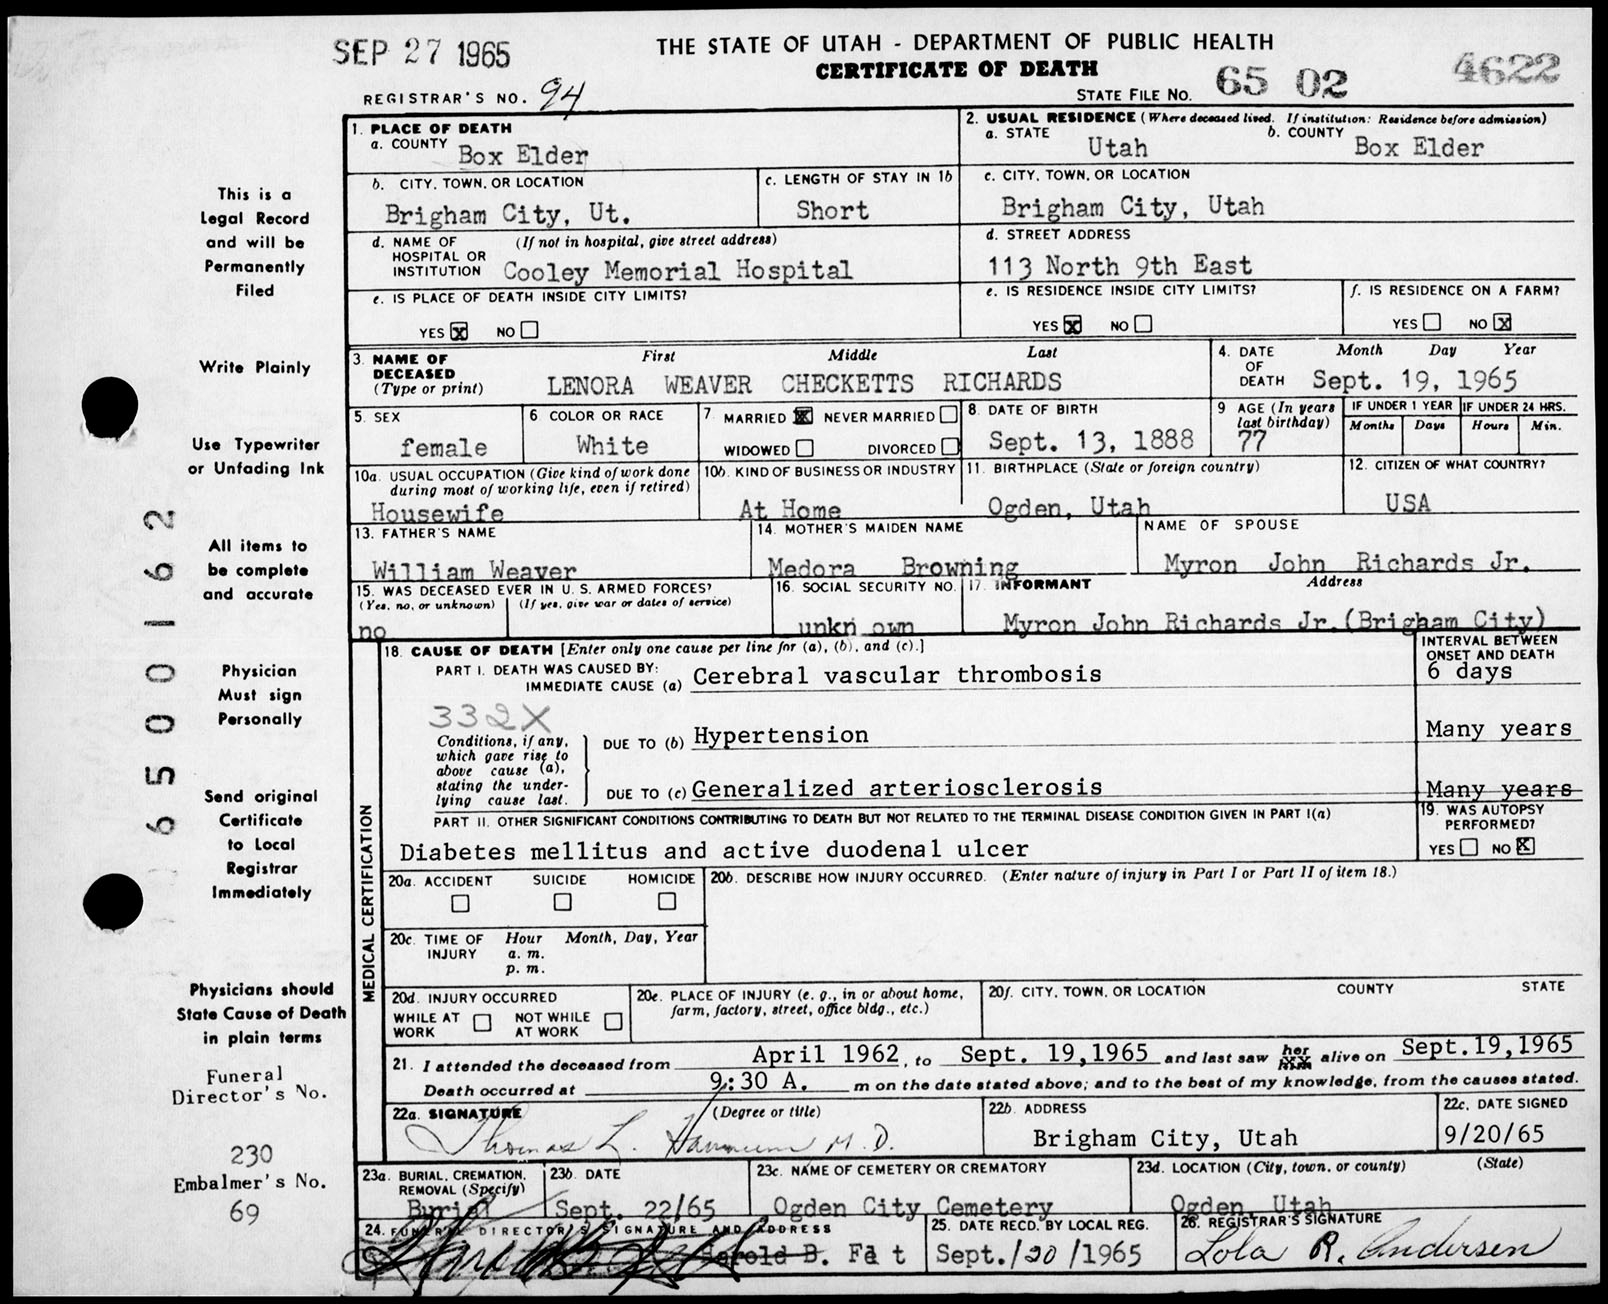 SEP 27 1965
THE STATE OF UTAH - DEPARTMENT OF PUBLIC HEALTH
CERTIFICATE OF DEATH
REGISTRAR'S NO. 94
STATE FILE NO. 65 02 4622
This is a
Legal Record
and will be
Permanently
Filed
Write Plainly
Use Typewriter
or Unfading Ink
All items to
be complete
and accurate
Physician
Must sign
Personally
Send original
Certificate
to Local
Registrar
Immediately
Physicians should
State Cause of Death
in plain terms
Funeral
Director's No.
230
Embalmer's No.
69
65 00 162
1. PLACE OF DEATH
a. COUNTY Box Elder
2. USUAL RESIDENCE (Where deceased lived. If institution: Residence before admission)
a. STATE Utah b. COUNTY Box Elder
b. CITY, TOWN, OR LOCATION
Brigham City, Ut.
c. LENGTH OF STAY IN 1b
Short
c. CITY, TOWN, OR LOCATION
Brigham City, Utah
d. NAME OF (If not in hospital, give street address)
HOSPITAL OR
INSTITUTION Cooley Memorial Hospital
d. STREET ADDRESS
113 North 9th East
e. IS PLACE OF DEATH INSIDE CITY LIMITS?
YES X NO
e. IS RESIDENCE INSIDE CITY LIMITS?
YES X NO
f. IS RESIDENCE ON A FARM?
YES NO X
3. NAME OF First Middle Last
DECEASED
(Type or print) LENORA WEAVER CHECKETTS RICHARDS
4. DATE Month Day Year
OF
DEATH Sept. 19, 1965
5. SEX
female
6 COLOR OR RACE
White
7 MARRIED X NEVER MARRIED
WIDOWED DIVORCED
8. DATE OF BIRTH
Sept. 13, 1888
9 AGE (In years
last birthday)
77
IF UNDER 1 YEAR IF UNDER 24 HRS.
Months Days Hours Min.
10a. USUAL OCCUPATION (Give kind of work done
during most of working life, even if retired)
Housewife
10b. KIND OF BUSINESS OR INDUSTRY
At Home
11. BIRTHPLACE (State or foreign country)
Ogden, Utah
12. CITIZEN OF WHAT COUNTRY?
USA
13. FATHER'S NAME
William Weaver
14. MOTHER'S MAIDEN NAME
Medora Browning
NAME OF SPOUSE
Myron John Richards Jr.
15. WAS DECEASED EVER IN U. S. ARMED FORCES?
(Yes, no, or unknown) (If yes, give war or dates of service)
no
16. SOCIAL SECURITY NO.
unkn own
17. INFORMANT Address
Myron John Richards Jr.(Brigham City)
MEDICAL CERTIFICATION
18. CAUSE OF DEATH [Enter only one cause per line for (a), (b), and (c).]
INTERVAL BETWEEN
ONSET AND DEATH
PART I. DEATH WAS CAUSED BY:
IMMEDIATE CAUSE (a) Cerebral vascular thrombosis 6 days
332X
Conditions, if any,
which gave rise to
above cause (a),
stating the under-
lying cause last.
DUE TO (b) Hypertension Many years
DUE TO (c) Generalized arteriosclerosis Many years
PART II. OTHER SIGNIFICANT CONDITIONS CONTRIBUTING TO DEATH BUT NOT RELATED TO THE TERMINAL DISEASE CONDITION GIVEN IN PART I(a)
Diabetes mellitus and active duodenal ulcer
19. WAS AUTOPSY
PERFORMED?
YES NO X
20a. ACCIDENT SUICIDE HOMICIDE
20b. DESCRIBE HOW INJURY OCCURRED. (Enter nature of injury in Part I or Part II of item 18.)
20c. TIME OF Hour Month, Day, Year
INJURY a. m.
p. m.
20d. INJURY OCCURRED
WHILE AT NOT WHILE
WORK AT WORK
20e. PLACE OF INJURY (e. g., in or about home,
farm, factory, street, office bldg., etc.)
20f. CITY, TOWN, OR LOCATION COUNTY STATE
21. I attended the deceased from April 1962, to Sept. 19,1965 and last saw her alive on Sept.19,1965
Death occurred at 9:30 A. m on the date stated above; and to the best of my knowledge, from the causes stated.
22a. SIGNATURE (Degree or title)
Thomas L. M. D.
22b. ADDRESS
Brigham City, Utah
22c. DATE SIGNED
9/20/65
23a. BURIAL, CREMATION,
REMOVAL (Specify)
Burial
23b. DATE
Sept. 22/65
23c. NAME OF CEMETERY OR CREMATORY
Ogden City Cemetery
23d. LOCATION (City, town, or county) (State)
Ogden, Utah
24. FUNERAL DIRECTOR'S SIGNATURE AND ADDRESS
Harold B. Fe t
25. DATE RECD. BY LOCAL REG.
Sept./20/1965
26. REGISTRAR'S SIGNATURE
Lola R. Andersen